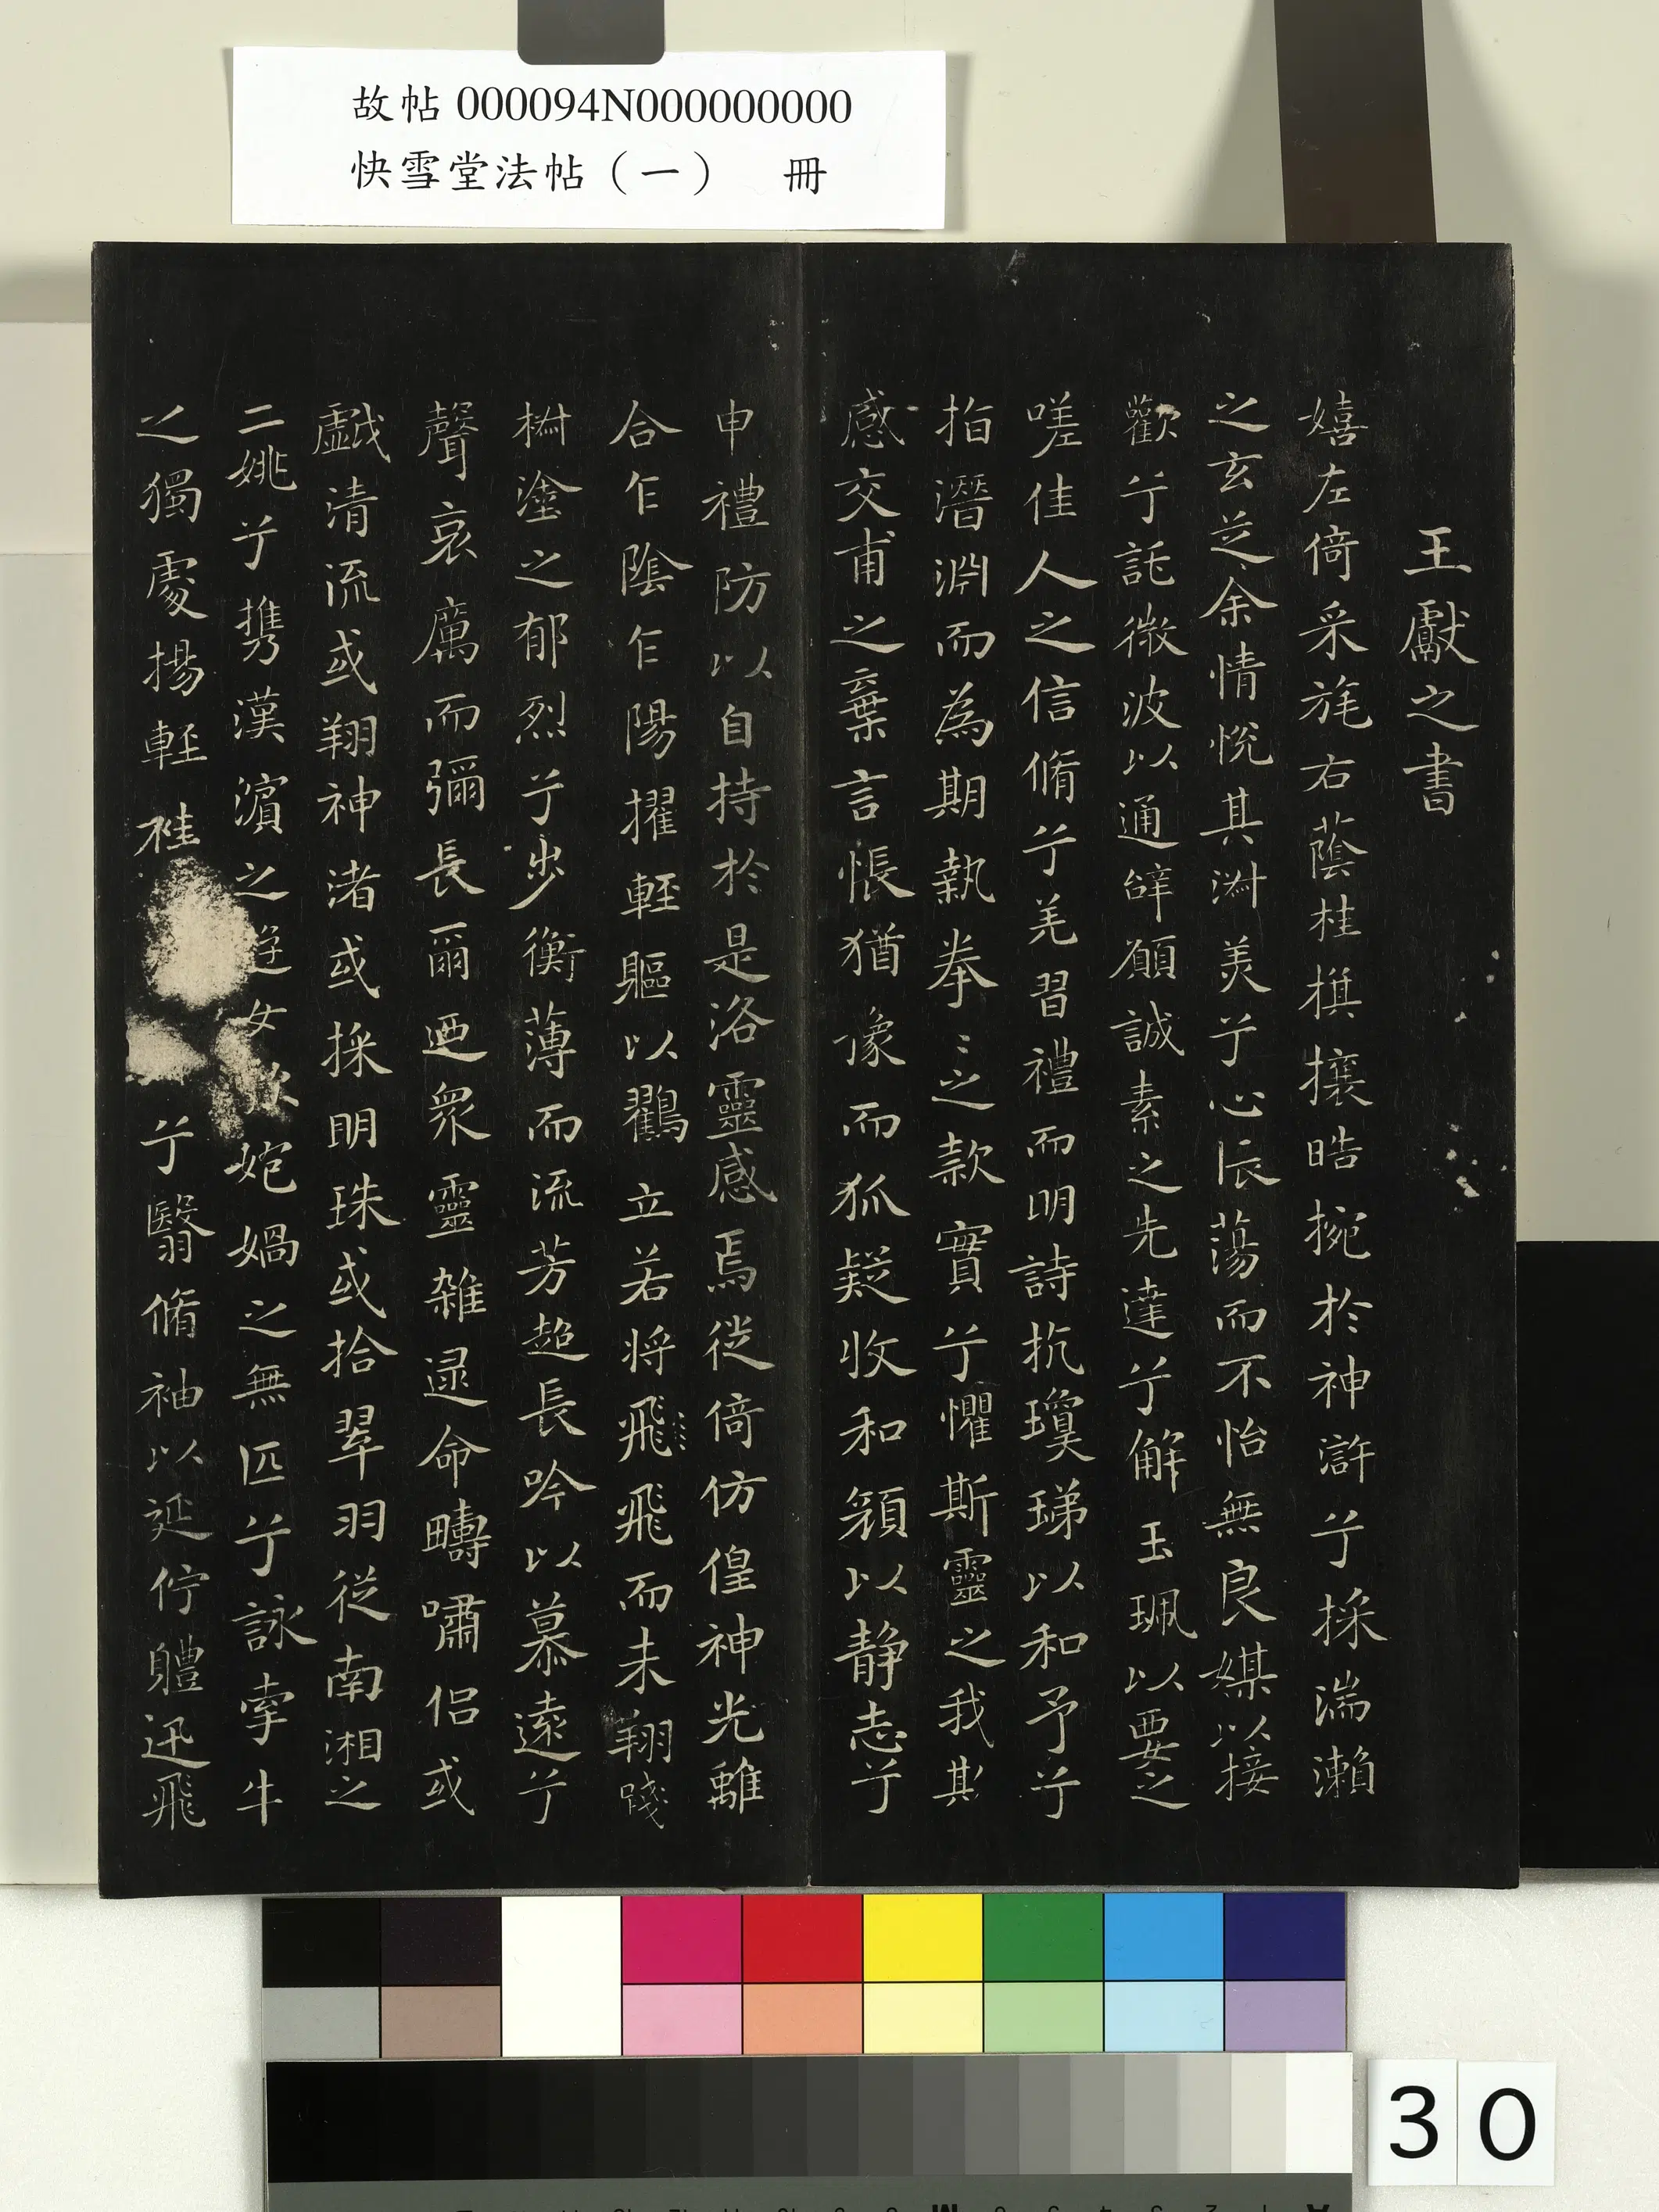 故帖000094N000000000
快雪堂法帖（一） 冊
王獻之書
嬉左倚采旄右蔭桂椇攘晧捥於神滸兮採湍瀨
之玄芝余情悅其淋美兮心辰蕩而不怡無良媒以接
歡兮託微波以通辭願誠素之先達兮解玉珮以要之
嗟佳人之信脩兮羌習禮而明詩抗瓊珶以和予兮
指潛淵而為期執拳〻之款實兮懼斯靈之我欺
感交甫之棄言悵猶像而狐疑收和顏以静志兮
申禮防以自持於是洛靈感焉徙倚仿偟神光離
合乍陰乍陽擢輕軀以鸛立若將飛飛而未翔踐
椒塗之郁烈兮步衡薄而流芳超長吟以慕遠兮
聲哀厲而彌長爾迺衆靈雜遝命疇嘯侶或
戲清流或翔神渚或採明珠或拾翠羽從南湘之
二姚兮携漢濱之遊女歎媧之無匹兮詠牽牛
之獨處揚輕袿兮翳脩袖以延佇軆迅飛
30